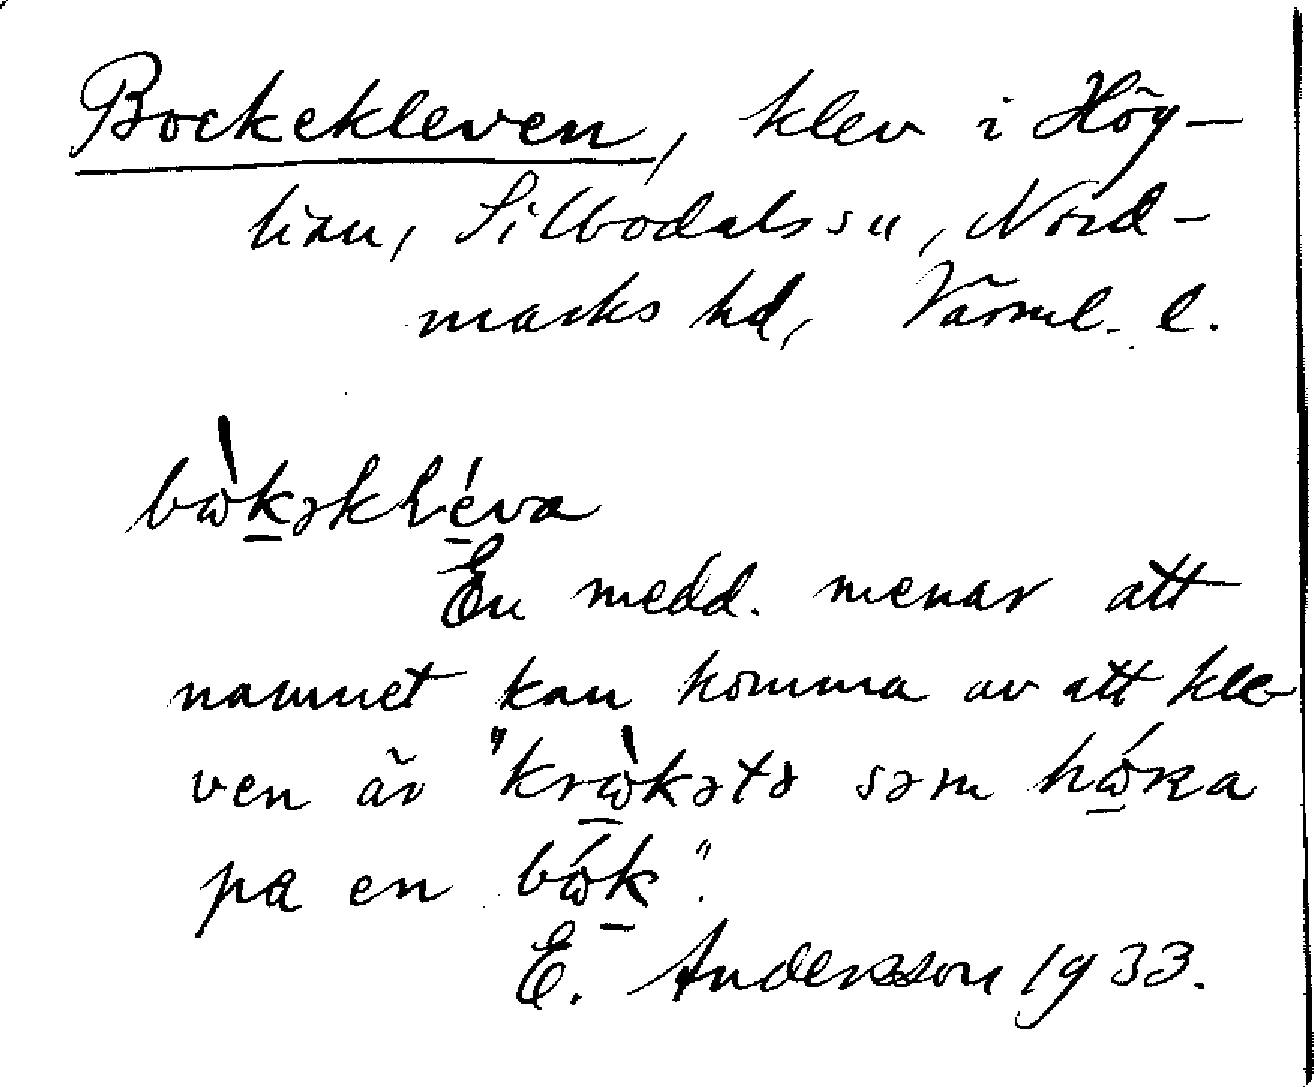 Bockekleven, klev i Hög-
lian, Silbodals sn, Nord-
marks hd, Värml. l.
bὼkəkléva
En medd. menar att
namnet kan komma av att kle-
ven är "krὼkətə səm hώṛna
pa en bώk".
E. Andersson 1933.